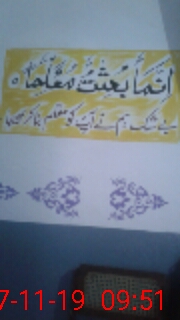 انما بعثت معلما
بے شک ہم نے آپ کو معلم بنا کر بھیجا
7-11-19 09:51